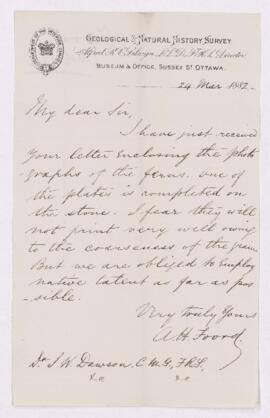 GEOLOGICAL & NATURAL HISTORY SURVEY
Alfred R. C. Selwyn, LL.D., F.R.S., Director
MUSEUM & OFFICE, SUSSEX ST. OTTAWA.
24 Mar 1882
My dear Sir,
I have just received
your letter enclosing the photo
graphs of the ferns. One of
the plates is completed on
the stone. I fear they will
not print very well owing
to the coarseness of the grain
But we are obliged to employ
native talent as far as pos-
sible.
Very truly Yours
A H Foord.
Dr J. W. Dawson, C.M.G., F.R.S.